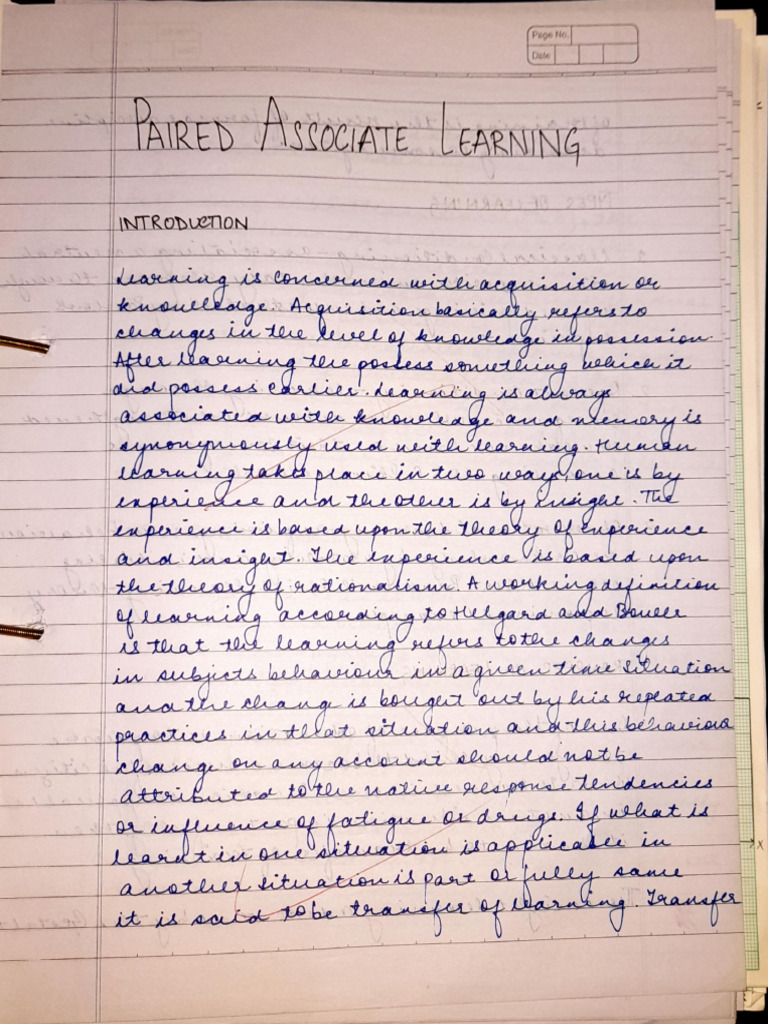 Page No.
Date
PAIRED ASSOCIATE LEARNING
INTRODUCTION
Learning is concerned with acquisition or
knowledge. Acquisition basically refers to
changes in the level of knowledge in possession.
After learning the possess something which it
did possess earlier. Learning is always
associated with knowledge and memory is
synonymously used with learning. Human
learning takes place in two ways, one is by
experience and the other is by insight. The
experience is based upon the theory of experience
and insight. The experience is based upon
the theory of rationalism. A working definition
of learning according to Helgard and Bower
is that the learning refers to the changes
in subjects behaviour in a given time situation
and the change is bought out by his repeated
practices in that situation and this behaviour
change on any account should not be
attributed to the native response tendencies
or influence of fatigue or drugs. If what is
learnt in one situation is applicable in
another situation is part or fully same
it is said to be transfer of learning. Transfer